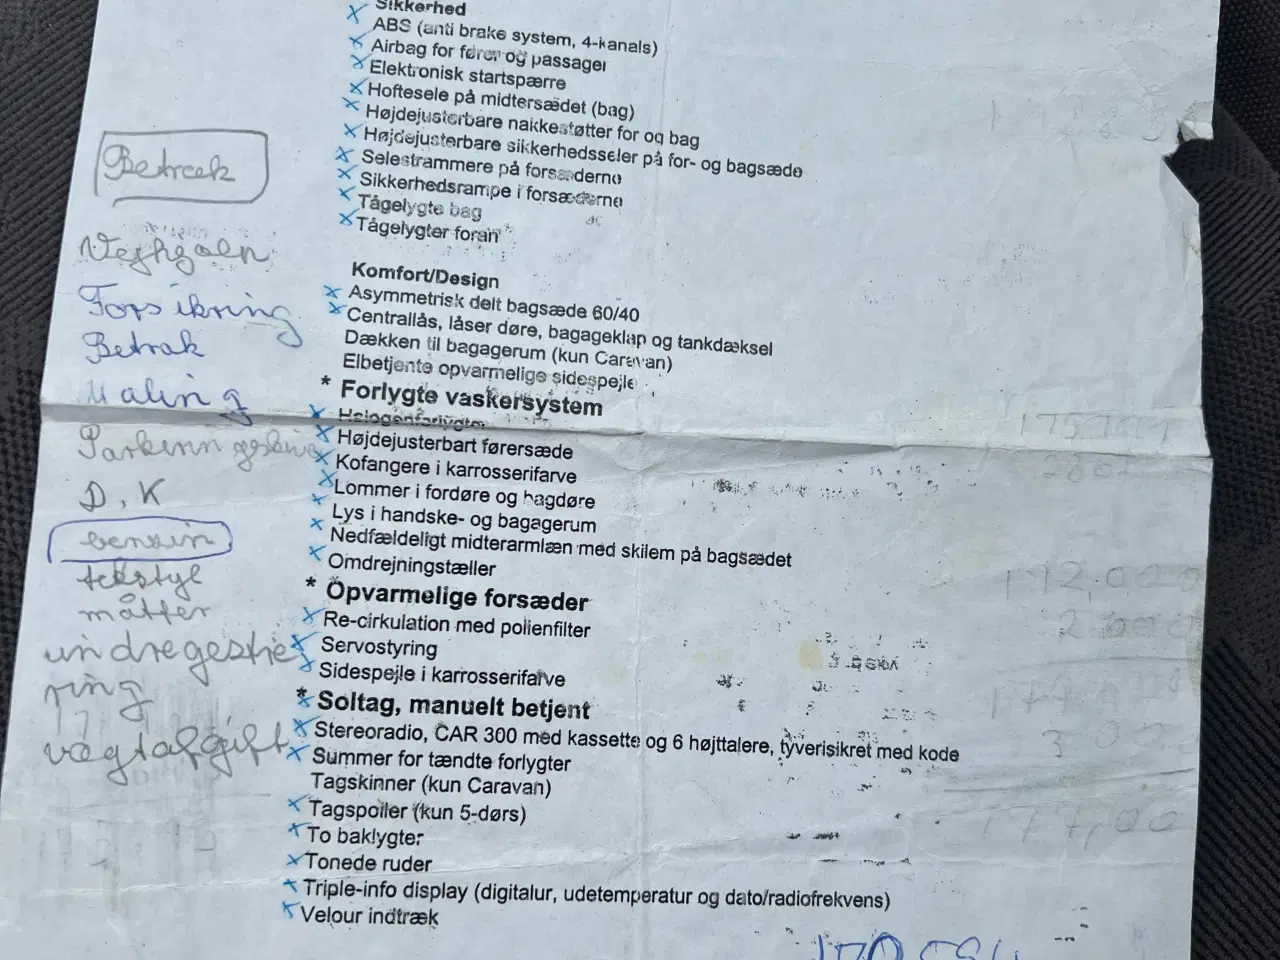 Sikkerhed
ABS (anti brake system, 4-kanals)
Airbag for fører og passager
Elektronisk startspærre
Hoftesele på midtersædet (bag)
Højdejusterbare nakkestøtter for og bag
Højdejusterbare sikkerhedsseler på for- og bagsæde
Selestrammere på forsæderne
Sikkerhedsrampe i forsæderne
Tågelygte bag
Tågelygter foran
Komfort/Design
Asymmetrisk delt bagsæde 60/40
Centrallås, låser døre, bagageklap og tankdæksel
Dækken til bagagerum (kun Caravan)
Elbetjente opvarmelige sidespejle
* Forlygte vaskersystem
Halogenforlygter
Højdejusterbart førersæde
Kofangere i karrosserifarve
Lommer i fordøre og bagdøre
Lys i handske- og bagagerum
Nedfældeligt midterarmlæn med skilem på bagsædet
Omdrejningstæller
* Opvarmelige forsæder
Re-cirkulation med pollenfilter
Servostyring
Sidespejle i karrosserifarve
* Soltag, manuelt betjent
Stereoradio, CAR 300 med kassette og 6 højttalere, tyverisikret med kode
Summer for tændte forlygter
Tagskinner (kun Caravan)
Tagspoiler (kun 5-dørs)
To baklygter
Tonede ruder
Triple-info display (digitalur, udetemperatur og dato/radiofrekvens)
Velour indtræk
Betræk
Vejhjælp
Forsikring
Betrak
Maling
D.K
bensin
tekstyl
måtter
undregestne
ring
vægtafgift
112,000